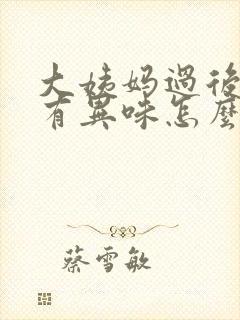 大姨妈過後
有異味怎麼
蔡雪敏